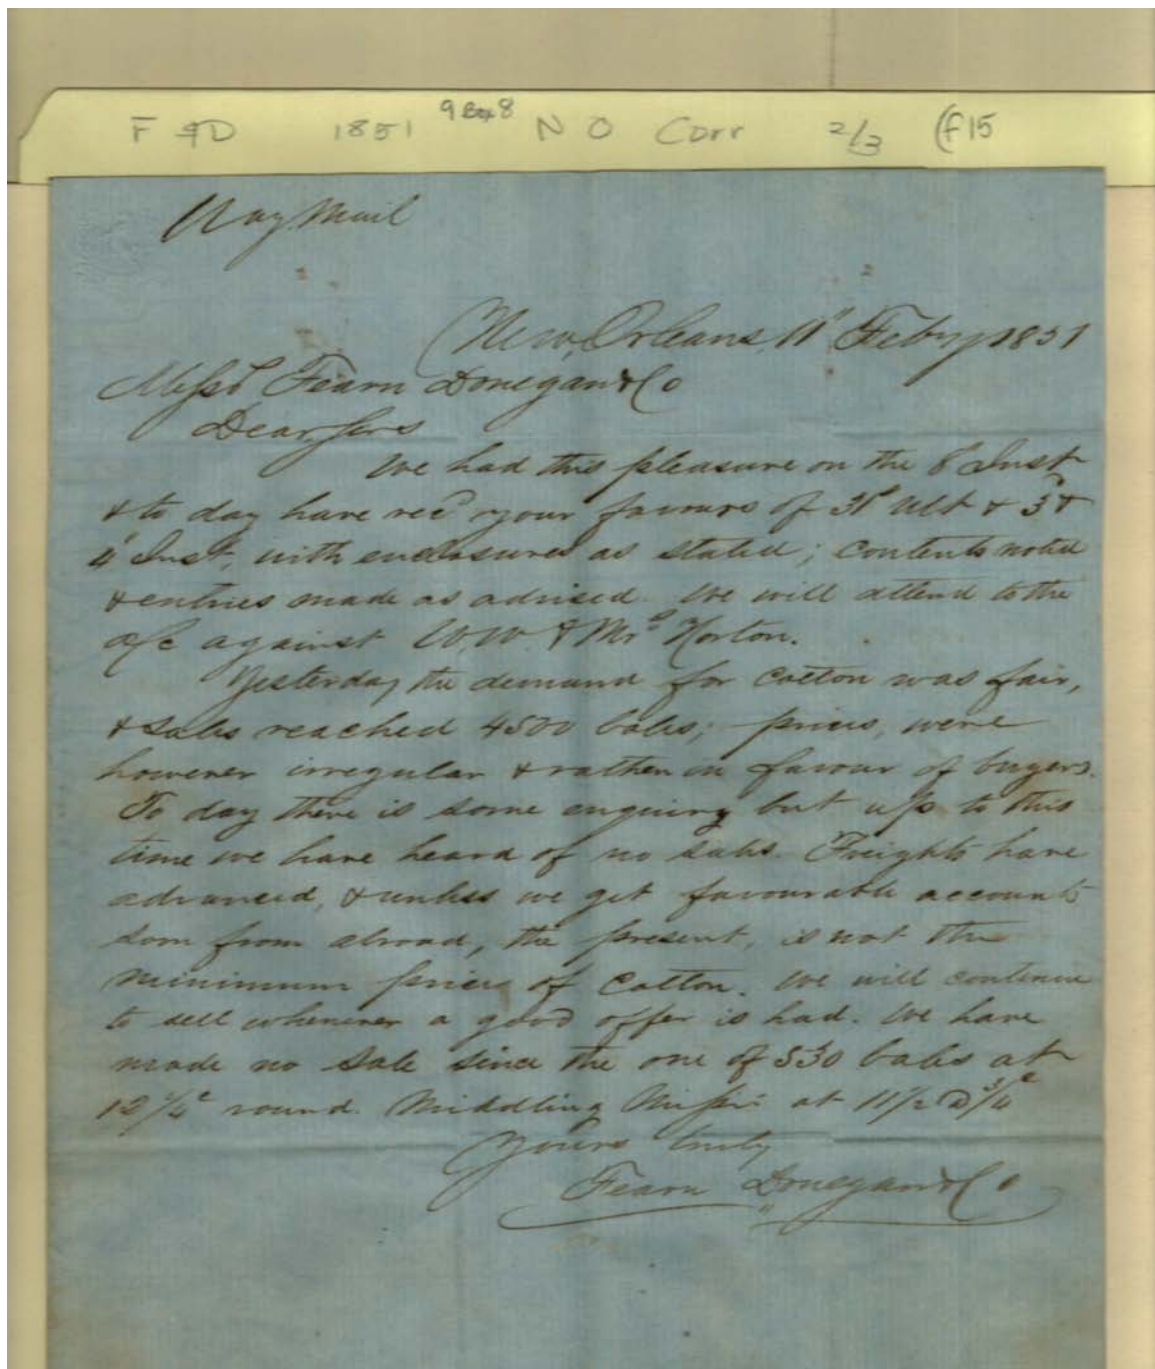 F & D 1851 9 Box 8 N O Corr 2/3 (f15
Way Mail
New Orleans, 11" Feby 1851
Messrs Fearn Donegan & Co
Dear Sirs
We had this pleasure on the 8" Inst
& to day have recd your favours of 31st Ult & 3d &
4" Inst, with enclosures as stated; contents noted
& entries made as advised. We will attend to the
a/c against W.W. & Mrs Horton.
Yesterday the demand for Cotton was fair,
& sales reached 4500 bales; prices, were
however irregular & rather in favour of buyers.
To day there is some enquiry but up to this
time we have heard of no sales. Freights have
advanced, & unless we get favourable accounts
soon from abroad, the present, is not the
minimum prices of Cotton. We will continue
to sell whenever a good offer is had. We have
made no sale since the one of 530 bales at
12 1/4c round. Middling Missi at 11 1/2 @ 3/4c
Yours truly
Fearn Donegan & Co